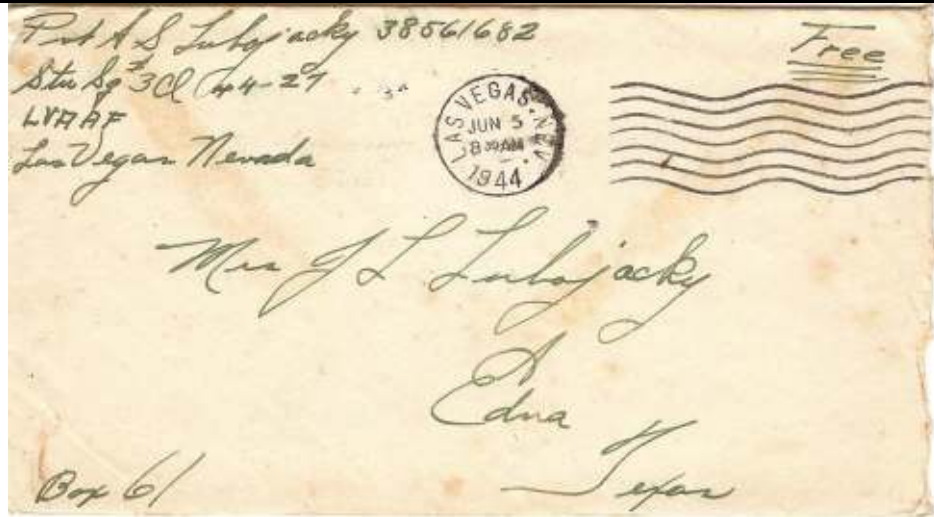 Pvt A S Lubojacky 38561682
Stu Sq # 3 Cl 44-27
LVAAF
Las Vegas Nevada
Free
LAS VEGAS, NEV.
JUN 5
8 30 AM
1944
Mrs J L Lubojacky
Edna
Texas
Box 61